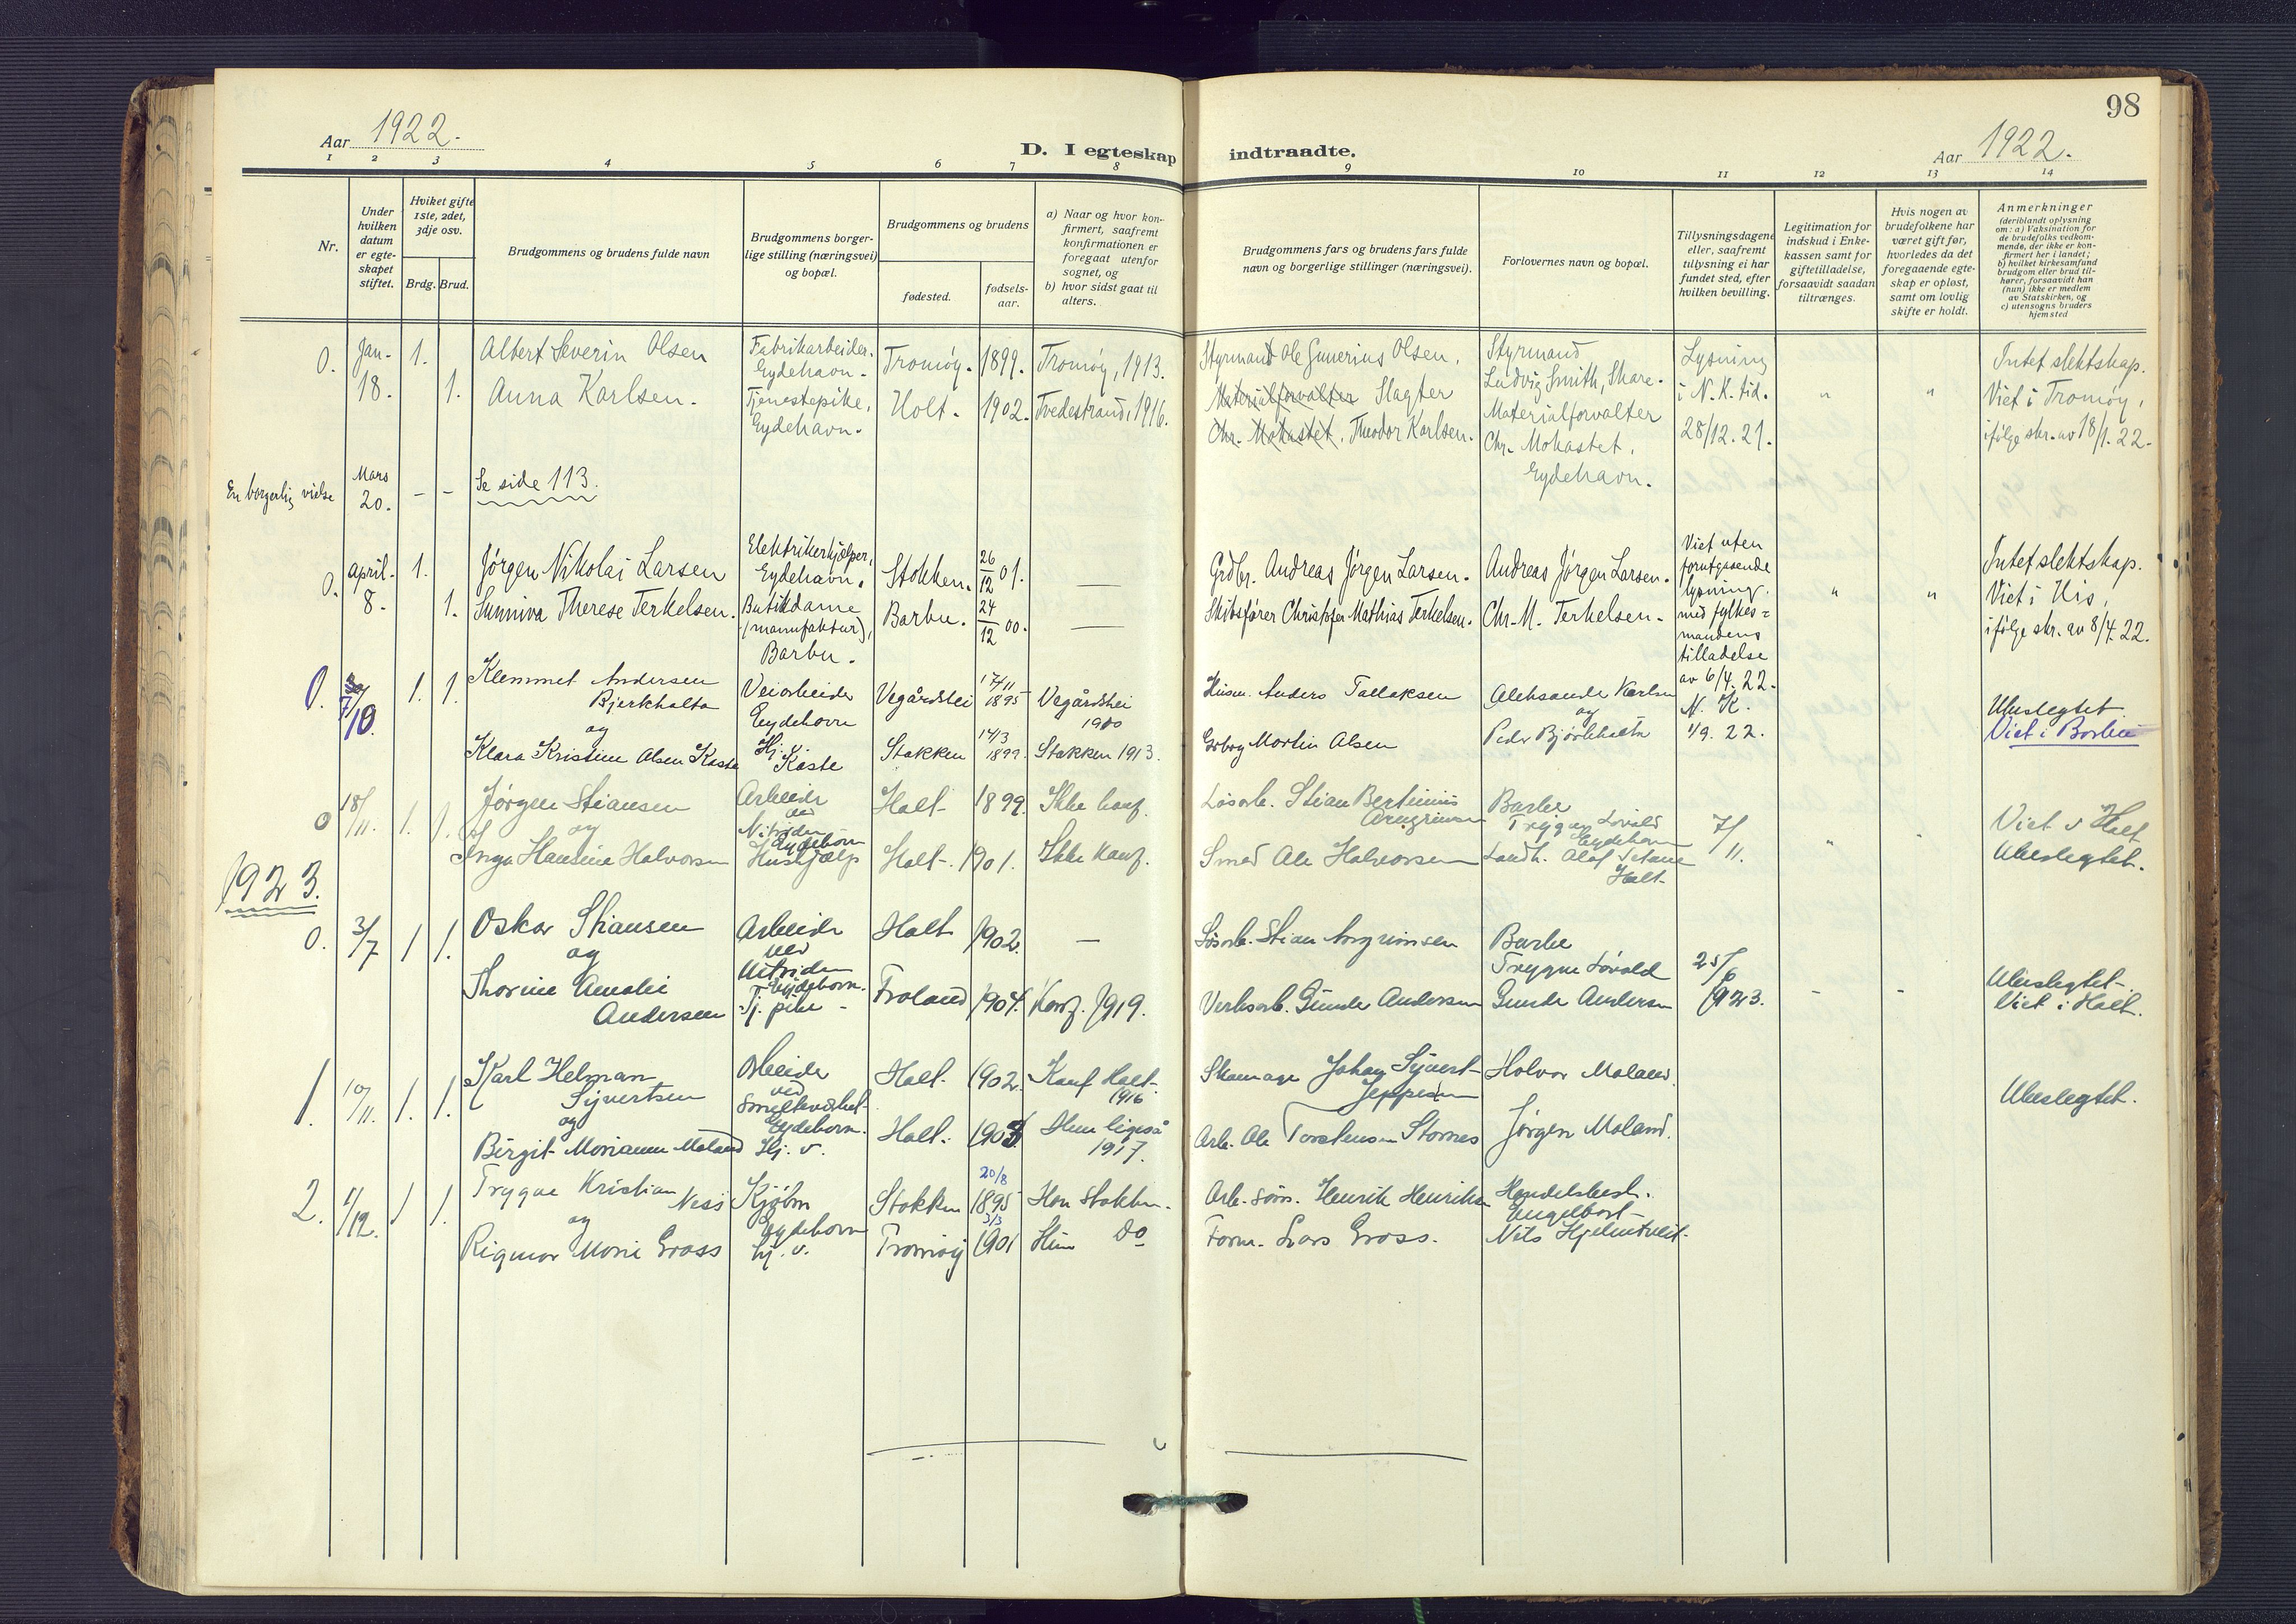 98
Aar 1922.
D. I egteskap indtraadte.
Aar 1922.
1 2 3 4 5 6 7 8 9 10 11 12 13 14
Nr.
Under
hvilken
datum
er egte-
skapet
stiftet.
Hvilket gifte
1ste, 2det,
3dje osv.
Brdg. Brud.
Brudgommens og brudens fulde navn
Brudgommens borger-
lige stilling (næringsvei)
og bopæl.
Brudgommens og brudens
fødested.
fødsels-
aar.
a) Naar og hvor kon-
firmert, saafremt
konfirmationen er
foregaat utenfor
sognet, og
b) hvor sidst gaat til
alters.
Brudgommens fars og brudens fars fulde
navn og borgerlige stillinger (næringsvei).
Forlovernes navn og bopæl.
Tillysningsdagene
eller, saafremt
tillysning ei har
fundet sted, efter
hvilken bevilling.
Legitimation for
indskud i Enke-
kassen samt for
giftetilladelse,
forsaavidt saadan
tiltrænges.
Hvis nogen av
brudefolkene har
været gift før,
hvorledes da det
foregaaende egte-
skap er opløst,
samt om lovlig
skifte er holdt.
Anmerkninger
(deriblandt oplysning
om: a) Vaksination for
de brudefolks vedkom-
mende, der ikke er kon-
firmert her i landet;
b) hvilket kirkesamfund
brudgom eller brud til-
hører, forsaavidt han
(hun) ikke er medlem
av Statskirken, og
c) utensogns bruders
hjemsted
0. Jan- 18. 1. 1.
Albert Severin Olsen
Anna Karlsen.
Fabrikarbeider.
Eydehavn.
Tjenestepike,
Eydehavn.
Tromøy. 1899. Tromøy, 1913.
Holt. 1902. Tvedestrand, 1916.
Styrmand Ole Gunerius Olsen.
Materialforvalter Slagter
Chr. Mokastet. Theodor Karlsen.
Styrmand
Ludvig Smith, Skare.
Materialforvalter
Chr. Mokastet,
Eydehavn.
Lysning
i N. K. tid.
28/12. 21.
" "
Intet slektskap.
Viet i Tromøy,
ifølge skr. av 18/1. 22.
En borgerlig vielse Mars 20. - - Se side 113.
0. April. 8. 1. 1.
Jørgen Nikolai Larsen
Sunniva Therese Terkelsen.
Elektrikerhjælper,
Eydehavn.
Butikdame
(manufaktur),
Barbu.
Stokken. 26/12 01. —
Barbu. 24/12 00. —
Grdbr. Andreas Jørgen Larsen.
Skibsfører Christopher Mathias Terkelsen.
Andreas Jørgen Larsen.
Chr. M. Terkelsen.
Viet uten
forutgaaende
lysning.
med fylkes=
mandens
tilladelse
av 6/4. 22.
" "
Intet slektskap.
Viet i His,
ifølge skr. av 8/4. 22.
0. 7/10. 1. 1.
Klemmet Andersen
Bjerkholta
og
Klara Kristine Olsen Kaste
Veiarbeider
Eydehavn
Hj. v.
Kaste
Vegårdshei 17/11 1895 Vegårdshei
1910
Stokken 14/3 1899. Stokken 1913.
Husm. Anders Tallaksen
Grbrg Martin Olsen
Aleksander Karlsen
og
Peder Bjørkholta
N. K.
1/9. 22.
Ubeslegtet
Viet i Barbu
0 18/11. 1. 1.
Jørgen Stiansen
og
Inga Hansine Halvorsen
Arbeider
ved
Nitriden
Eydehavn
Hushjælp
Holt 1899. Ikke konf.
Holt. 1901. Ikke konf.
Løsarb. Stian Bertinius
Arngrimsen
Smed Ole Halvorsen
Barbu
Trygve Løvald
Eydehavn
Landh. Olaf
Holt
7/11.
"
Viet i Holt
Ubeslegtet.
1923.
0. 3/7 1 1.
Oskar Stiansen
og
Thorine Amalie
Andersen
Arbeider
ved
Nitriden
Eydehavn.
Tj. pike -
Holt 1902. —
Froland 1904. Konf. 1919.
Løsarb. Stian Arngrimsen
Verksarb. Gunde Andersen
Barbu
Trygve Løvald
Gunde Andersen
25/6
1923.
- -
Ubeslegtet-
Viet i Holt.
1. 10/11. 1. 1.
Karl Helman
Syvertsen
og
Birgit Marianne Moland
Arbeider
ved
Smelteverket
Eydehavn.
Hj. v.
Holt. 1902. Konf Holt
1916
Holt. 1903 Hun ligeså
1917.
Skomager Johan Syvert
Jeppesen
Arb. Ole Torstensen Stornes
Halvor Moland.
Jørgen Moland.
Ubeslegtet.
2. 1/12. 1 1.
Trygve Kristian Ness
og
Rigmor Marie Gross
Kjøbm
Eydehavn
hj. v.
Stokken 20/8 1895 Han Stokken.
Tromøy 3/3 1901 Hun Do
Arb. Henrik Henriksen
Form. Lars Gross.
Handelsbest.
Nils Hjelmtveit.